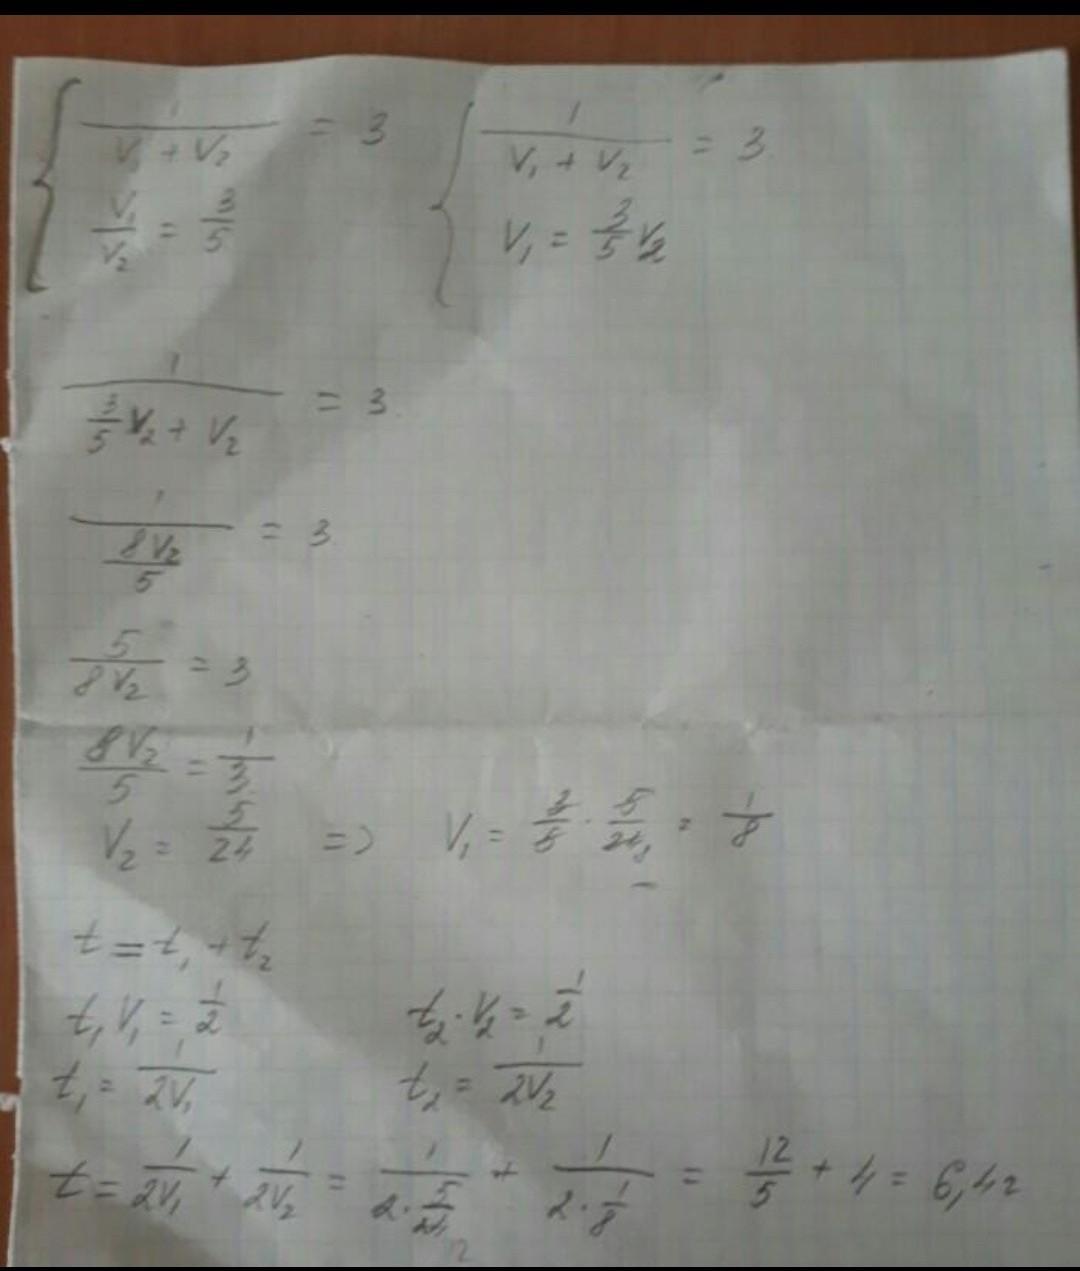 { 1/(V₁ + V₂) = 3    { 1/(V₁ + V₂) = 3
V₁/V₂ = 3/5    V₁ = 3/5 V₂
1/(3/5 V₂ + V₂) = 3
1/(8V₂/5) = 3
5/(8V₂) = 3
8V₂/5 = 1/3
V₂ = 5/24 => V₁ = 3/5 · 5/24₈ = 1/8
t = t₁ + t₂
t₁V₁ = 1/2    t₂·V₂ = 1/2
t₁ = 1/(2V₁)    t₂ = 1/(2V₂)
t = 1/(2V₁) + 1/(2V₂) = 1/(2·5/24) + 1/(2·1/8) = 12/5 + 4 = 6,4г